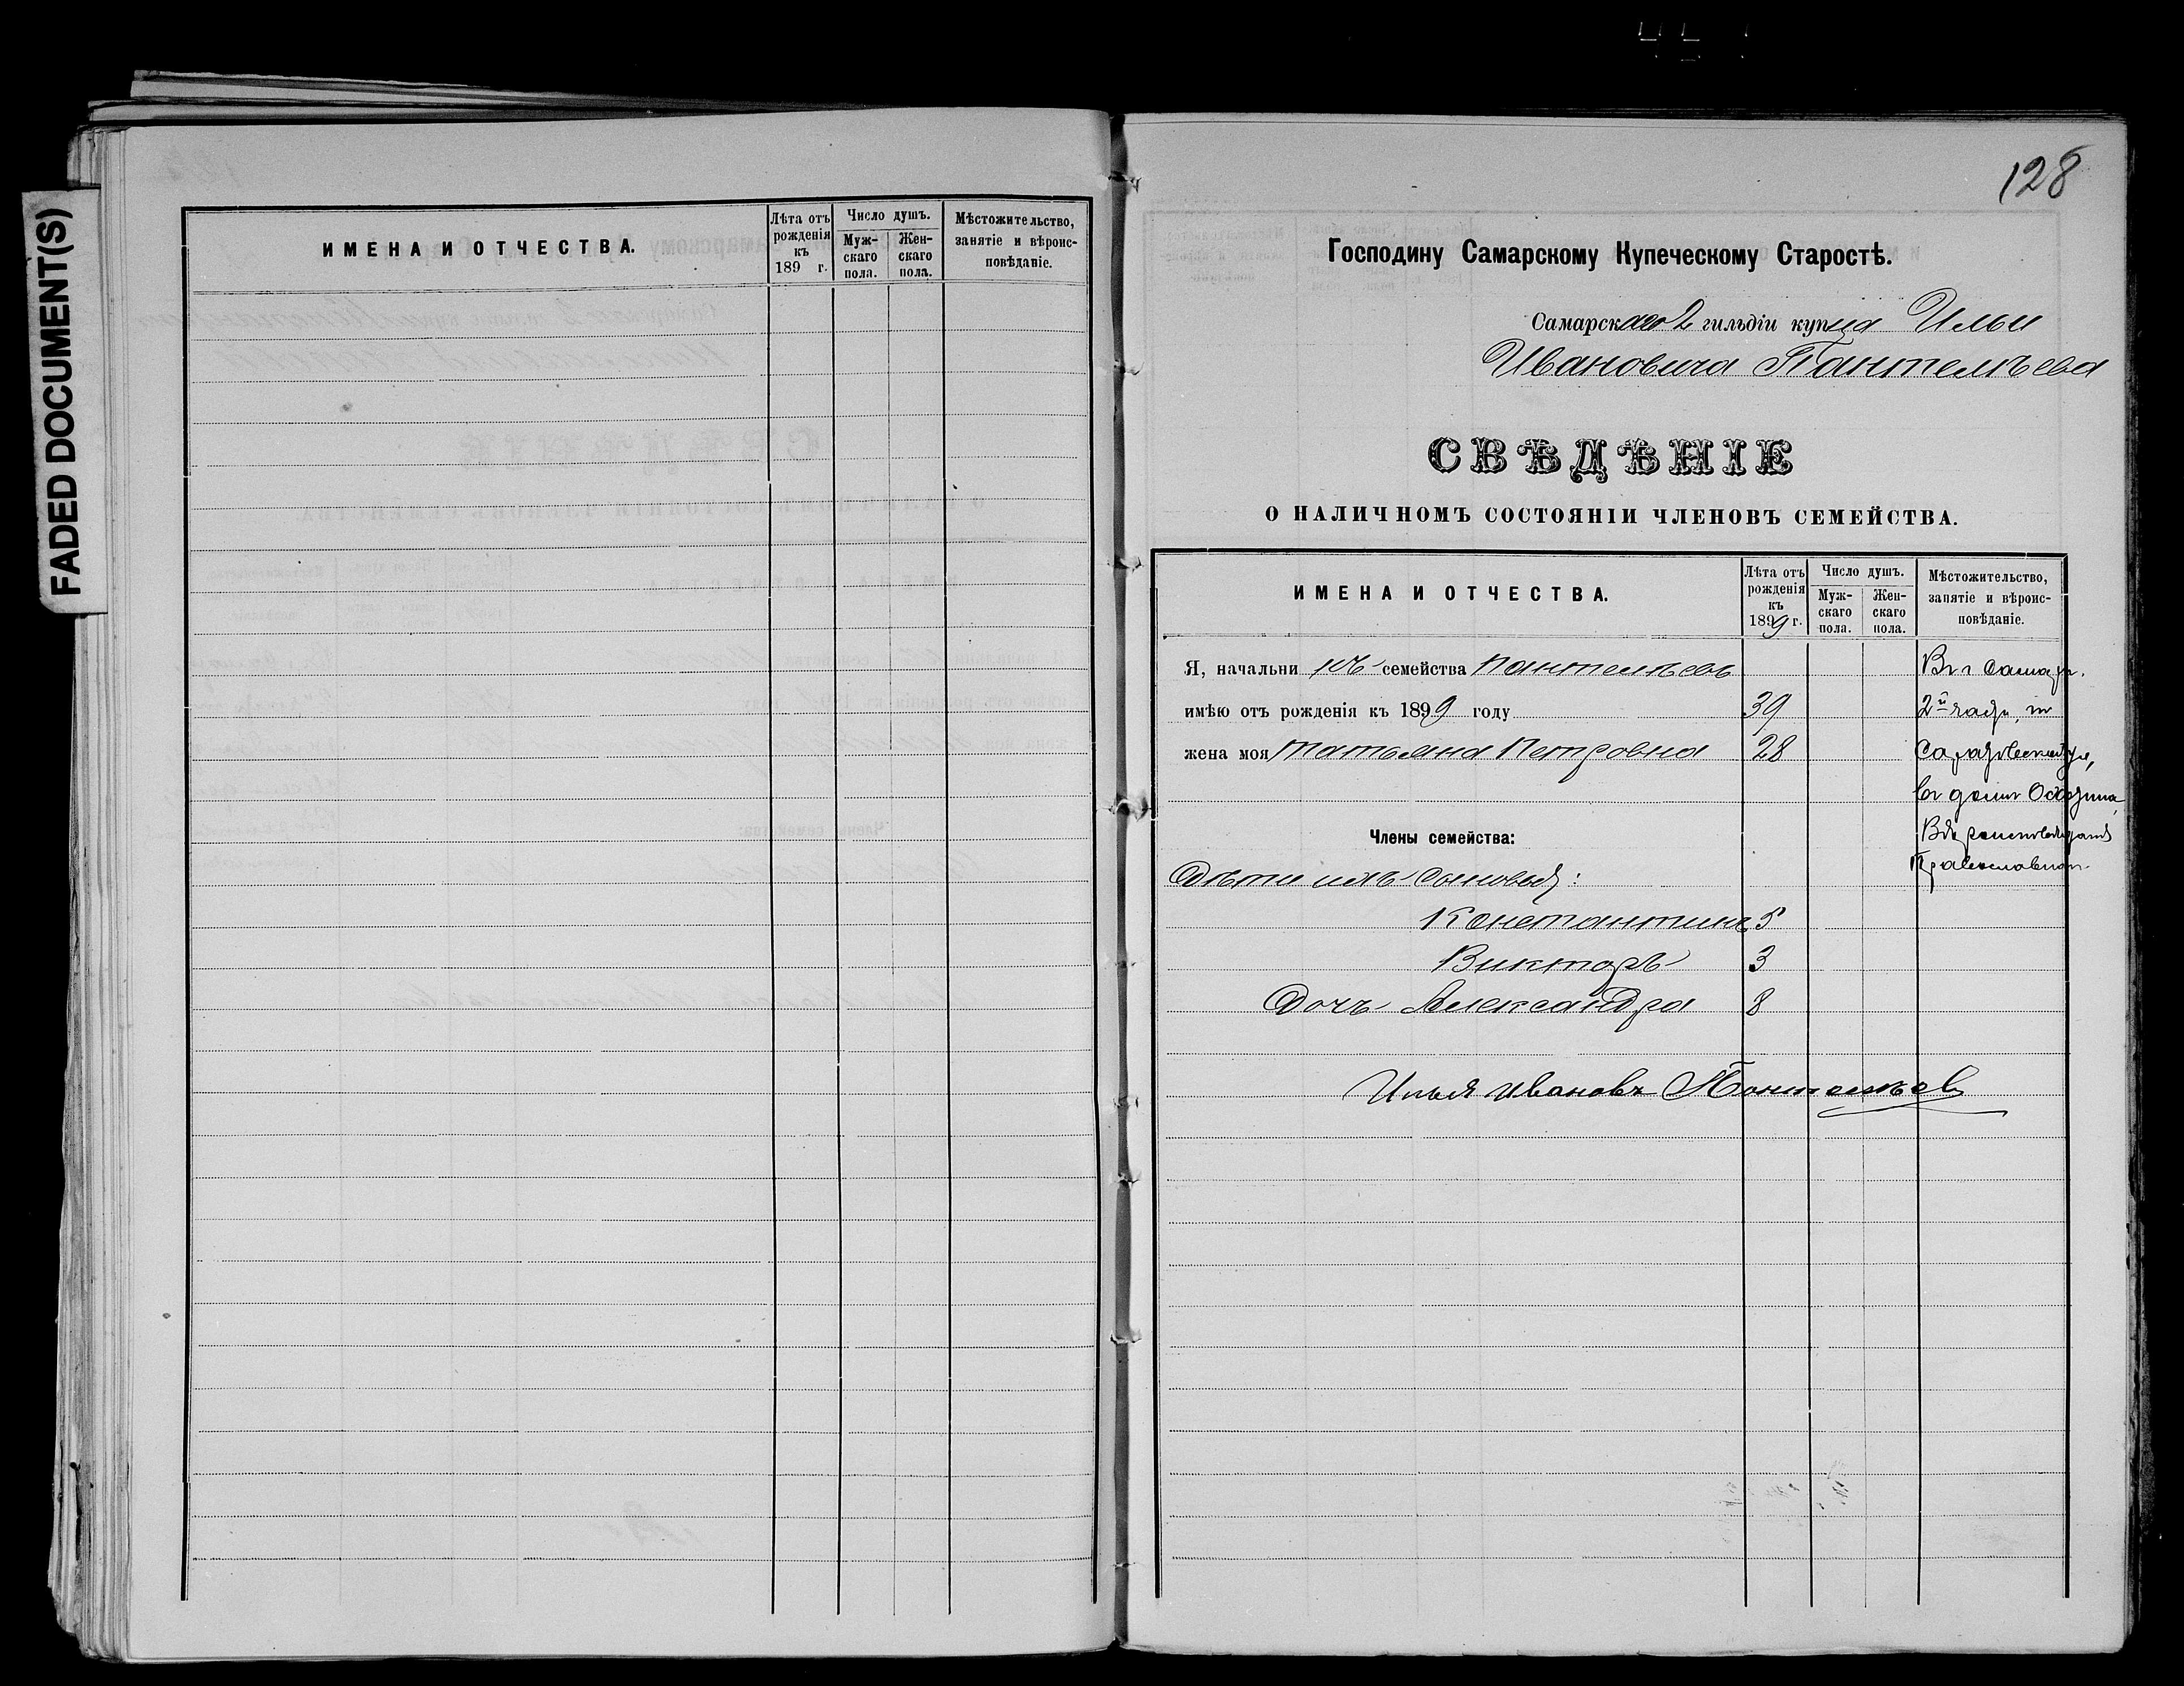 FADED DOCUMENT(S)
ИМЕНА И ОТЧЕСТВА.
Лѣта отъ рожденія къ 189 г.
Число душъ.
Муж-скаго пола.
Жен-скаго пола.
Мѣстожительство, занятіе и вѣроис-повѣданіе.
128
Господину Самарскому Купеческому Старостѣ.
Самарскаго 2 гильдіи купца Ильи
Ивановича Пантелѣева
СВѢДѢНІЕ
О НАЛИЧНОМЪ СОСТОЯНІИ ЧЛЕНОВЪ СЕМЕЙСТВА.
ИМЕНА И ОТЧЕСТВА.
Лѣта отъ рожденія къ 1899 г.
Число душъ.
Муж-скаго пола.
Жен-скаго пола.
Мѣстожительство, занятіе и вѣроис-повѣданіе.
Я, начальникъ семейства Пантелѣевъ Въ г Самарѣ.
имѣю отъ рожденія къ 1899 году 39 2й части, по
жена моя Татьяна Петровна 28 Саратовской ул,
въ домѣ
Члены семейства: Вѣроисповѣданія
Православнаго
Дѣти ихъ Сыновья:
Константинъ 5
Викторъ 3
Дочь Александра 8
Илья Ивановъ Пантелѣевъ